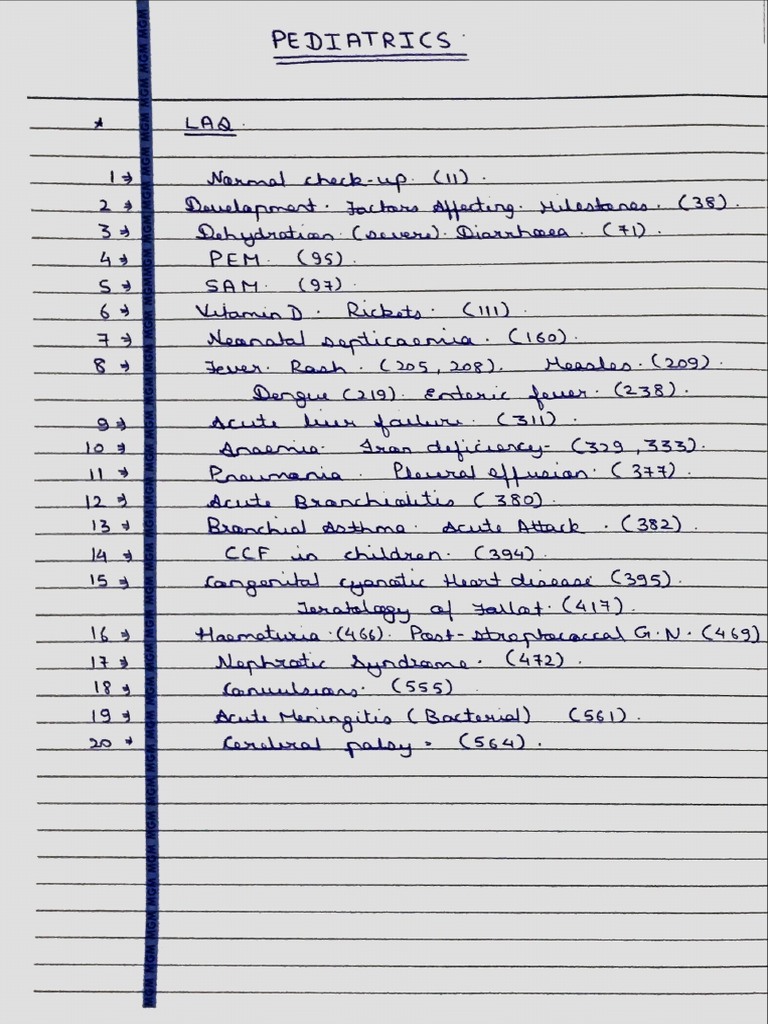 PEDIATRICS.
* LAQ.
1 → Normal check-up. (11).
2 → Development. Factors Affecting. Milestones. (38).
3 → Dehydration. (severe). Diarrhoea. (71).
4 → PEM. (95).
5 → SAM. (97).
6 → Vitamin D. Rickets. (111).
7 → Neonatal septicaemia. (160).
8 → Fever. Rash. (205, 208). Measles. (209).
Dengue (219). Enteric fever. (238).
9 → Acute liver failure. (311).
10 → Anaemia. Iron deficiency- (329, 333).
11 → Pneumonia. Pleural effusion. (377).
12 → Acute Bronchiolitis (380).
13 → Bronchial Asthma. Acute Attack. (382).
14 → CCF in children. (394).
15 → Congenital cyanotic Heart disease (395).
Teratology of Fallot. (417).
16 → Haematuria. (466). Post-streptococcal G.N. (469)
17 → Nephrotic Syndrome. (472).
18 → Convulsions. (555)
19 → Acute Meningitis (Bacterial) (561).
20 → Cerebral palsy. (564).
MGM MGM MGM MGM MGM MGM MGM MGM MGM MGM MGM MGM MGM MGM MGM MGM